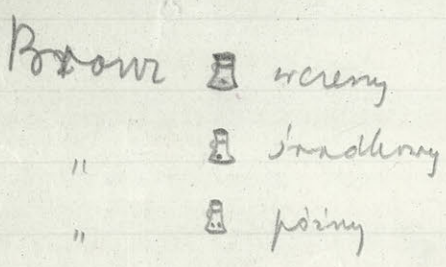 Bronz wczesny
" środkowy
" późny